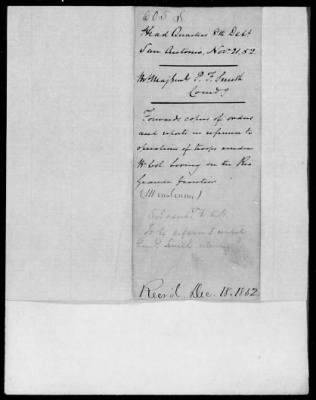 605 S
Head Quarters 8th Dept
San Antonio, Nov. 21, 52.
Bt Maj Genl P. F. Smith
Comdg
Forwards copies of orders
and reports in reference to
operations of troops under
Lt Col Loring on the Rio
Grande frontier
Gen Smith
Recd, Dec. 18. 1852